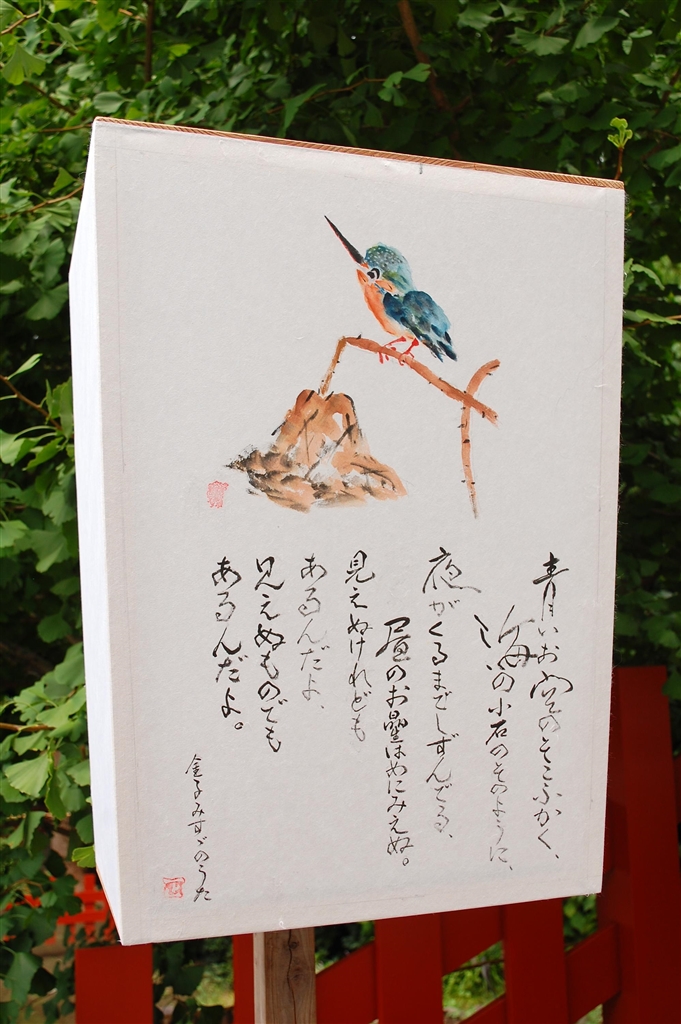 青いお空のそこふかく、
海の小石のそのように、
夜がくるまでしずんでる、
昼のお星はめにみえぬ。
見えぬけれども
あるんだよ、
見えぬものでも
あるんだよ。
金子みすゞのうた